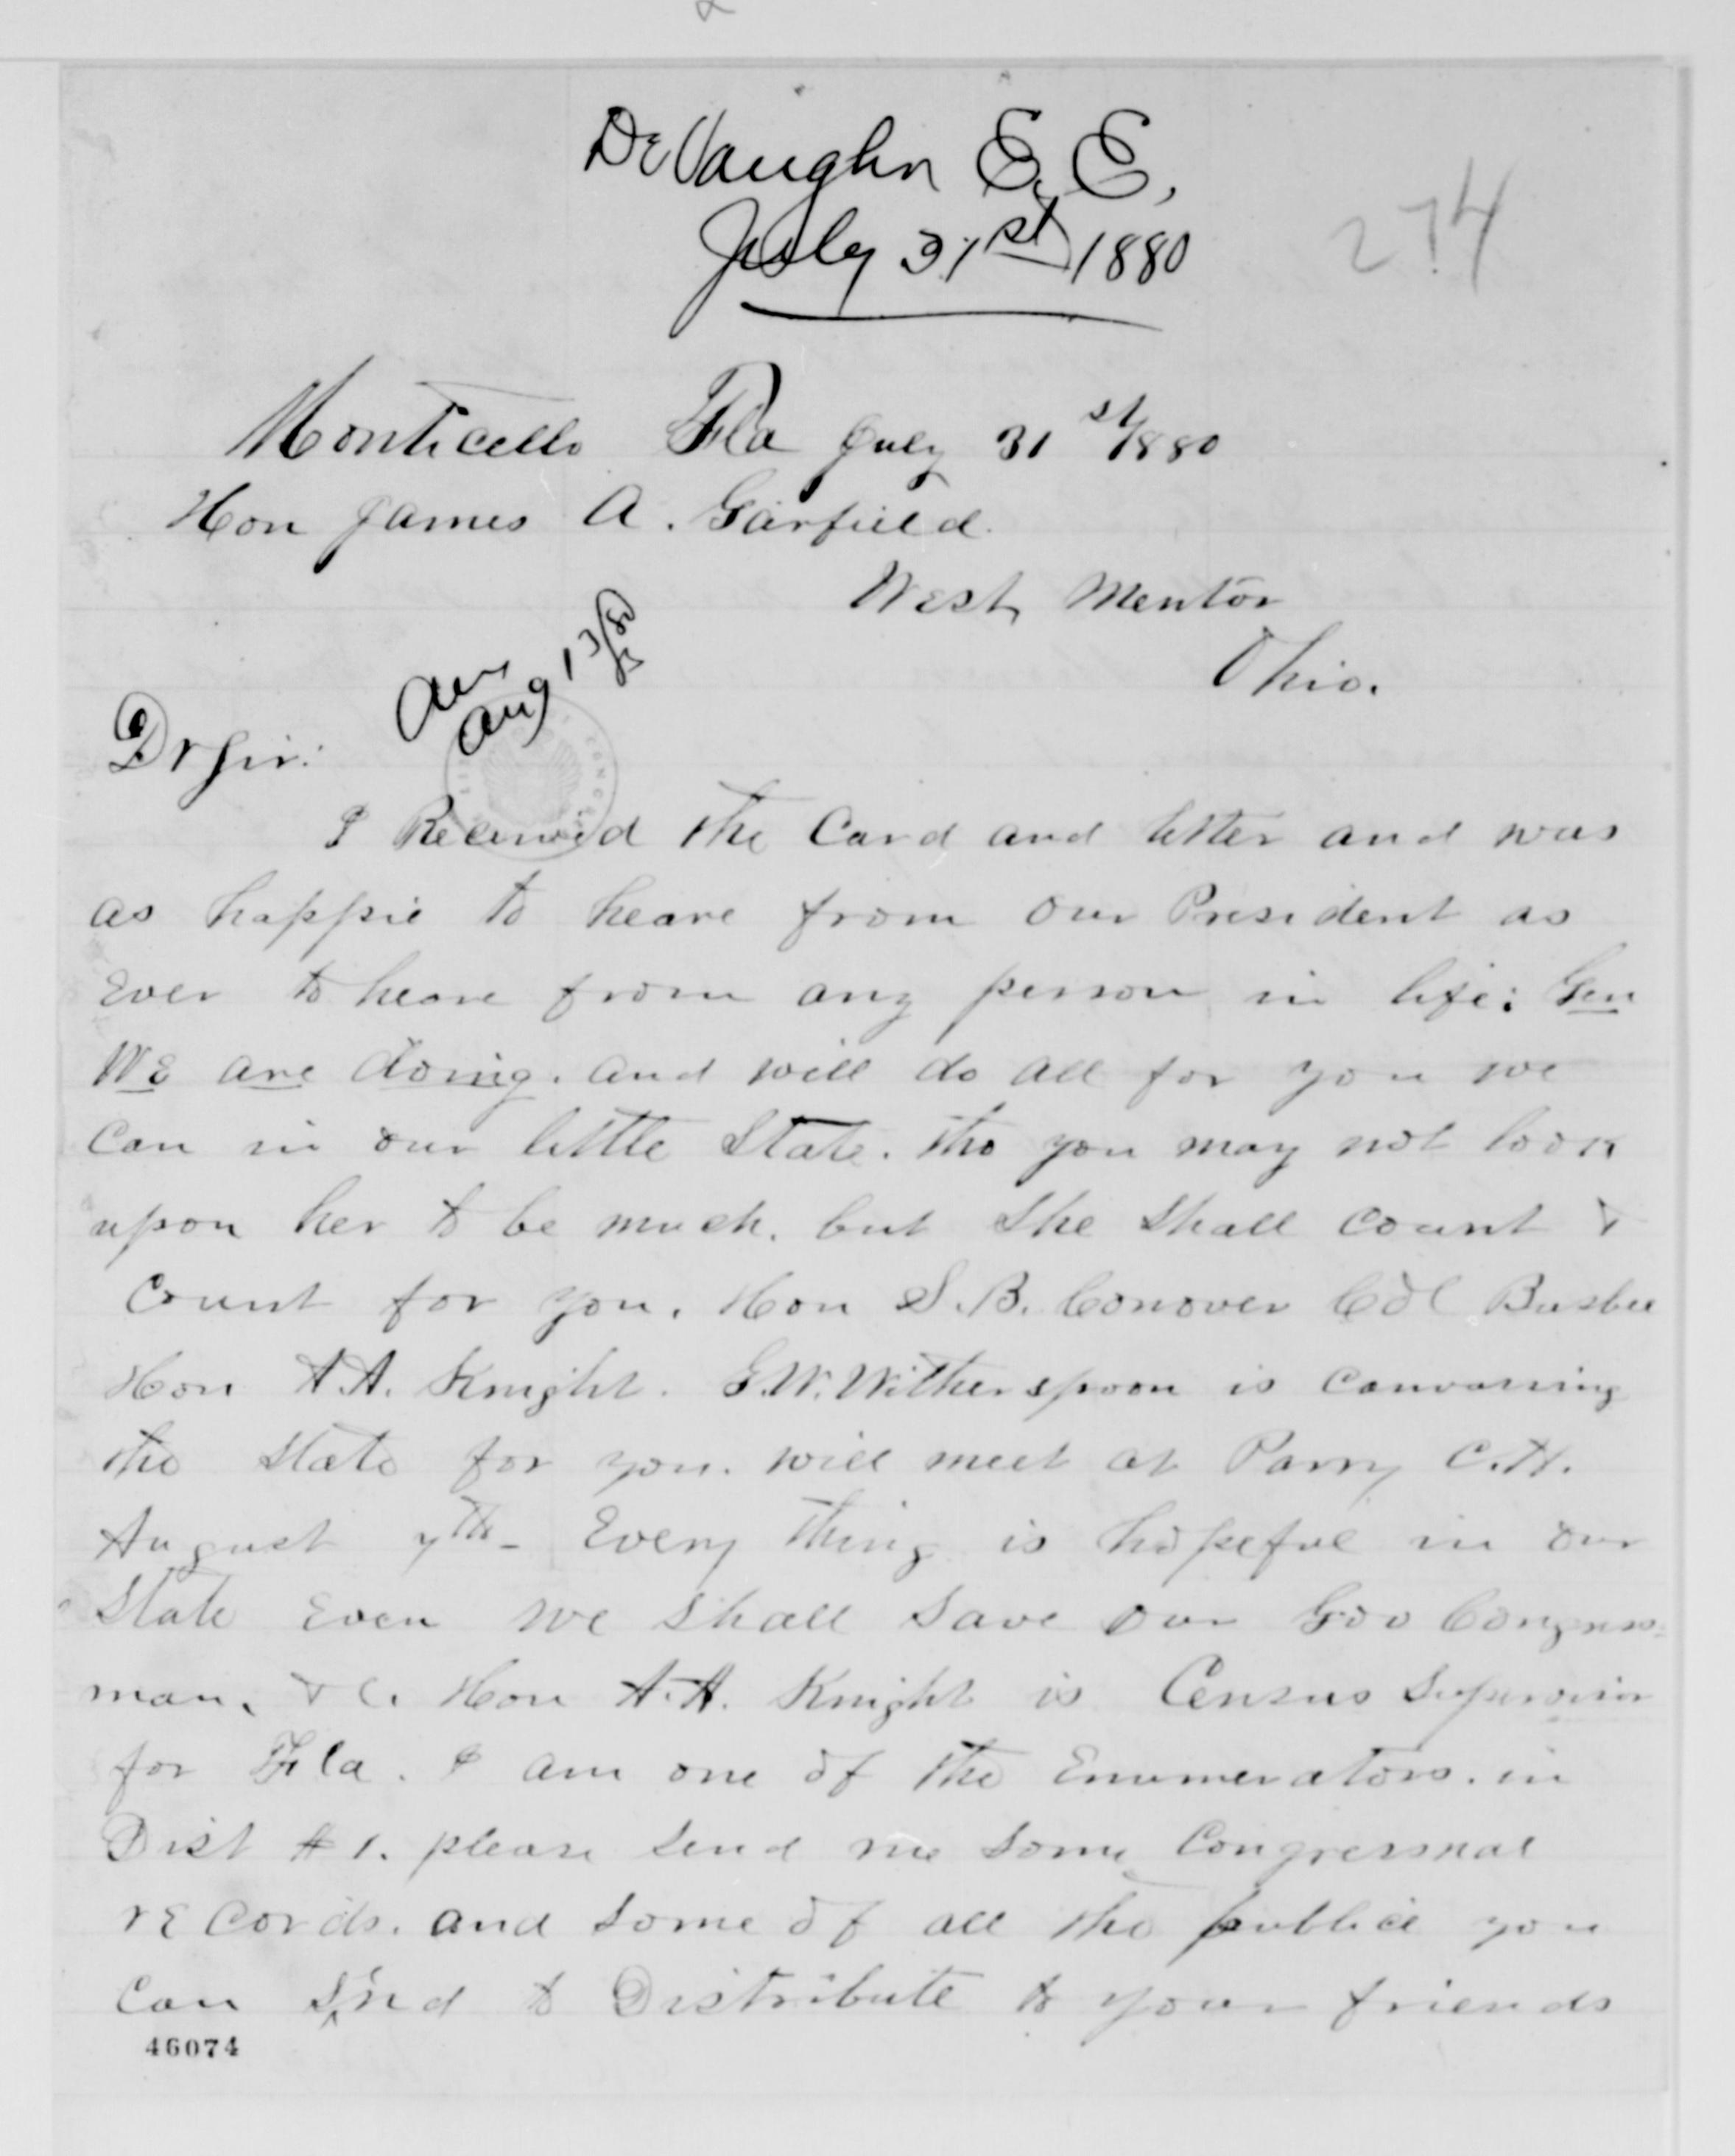 DeVaughn E. E.,
July 31st 1880
274
Monticello Fla July 31st/1880
Hon James A. Garfield.
West Mentor
Ohio.
Ans
Aug 13/80
Dr Sir:
I Received the Card and letter and was
as happie to heare from our President as
Ever to heare from any person in life: Gen
WE are doing. and will do all for you we
Can in our little State. tho you may not look
upon her to be much. but She Shall Count &
Count for you. Hon S. B. Conover Col Busbee
Hon A. A. Knight. G. W. Witherspoon is Canvassing
the State for you. will meet at Parry C. H.
August 7th - Every thing is hopeful in our
State Even we shall Save our Gov Congress-
man. & C. Hon A. A. Knight is Census Supervisor
for Fla. I am one of the Enumerators. in
Dist # 1. please Send me Some Congressnal
rECords. and Some of all the publice you
Can Send to Distribute to your friends
46074